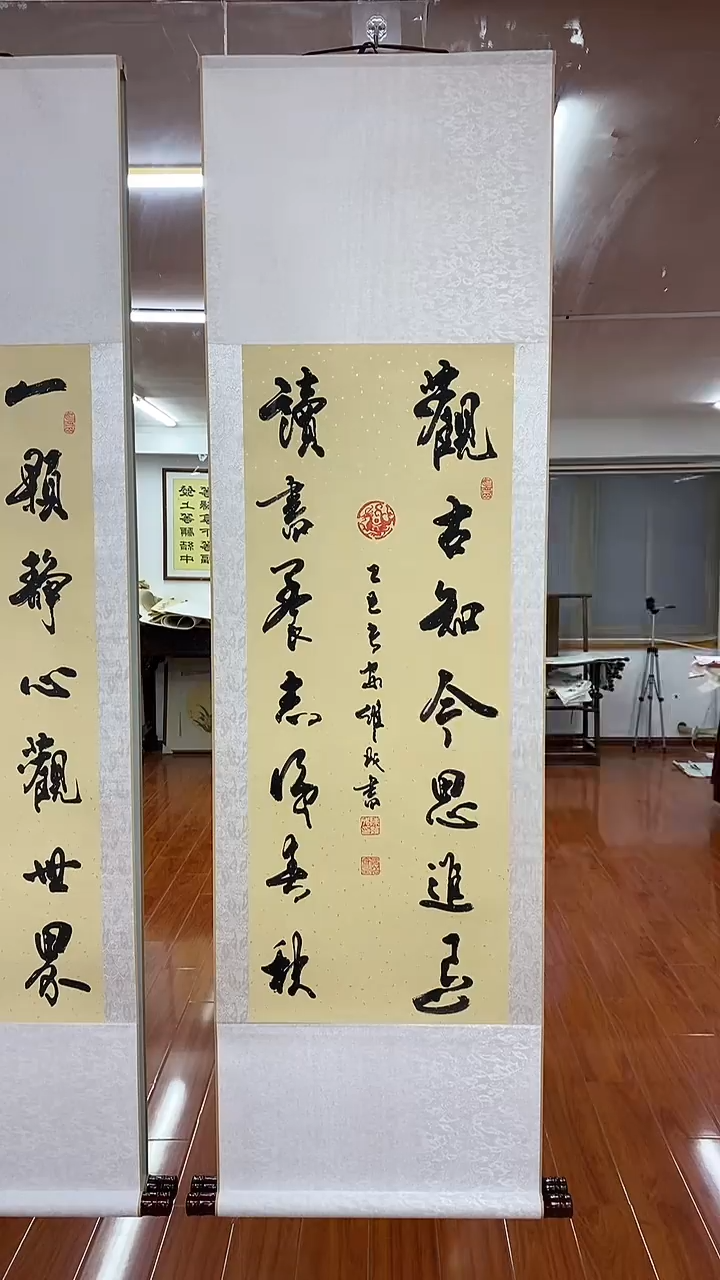 觀古知今思進退
乙巳書
讀書養志識春秋
一顆靜心觀世界